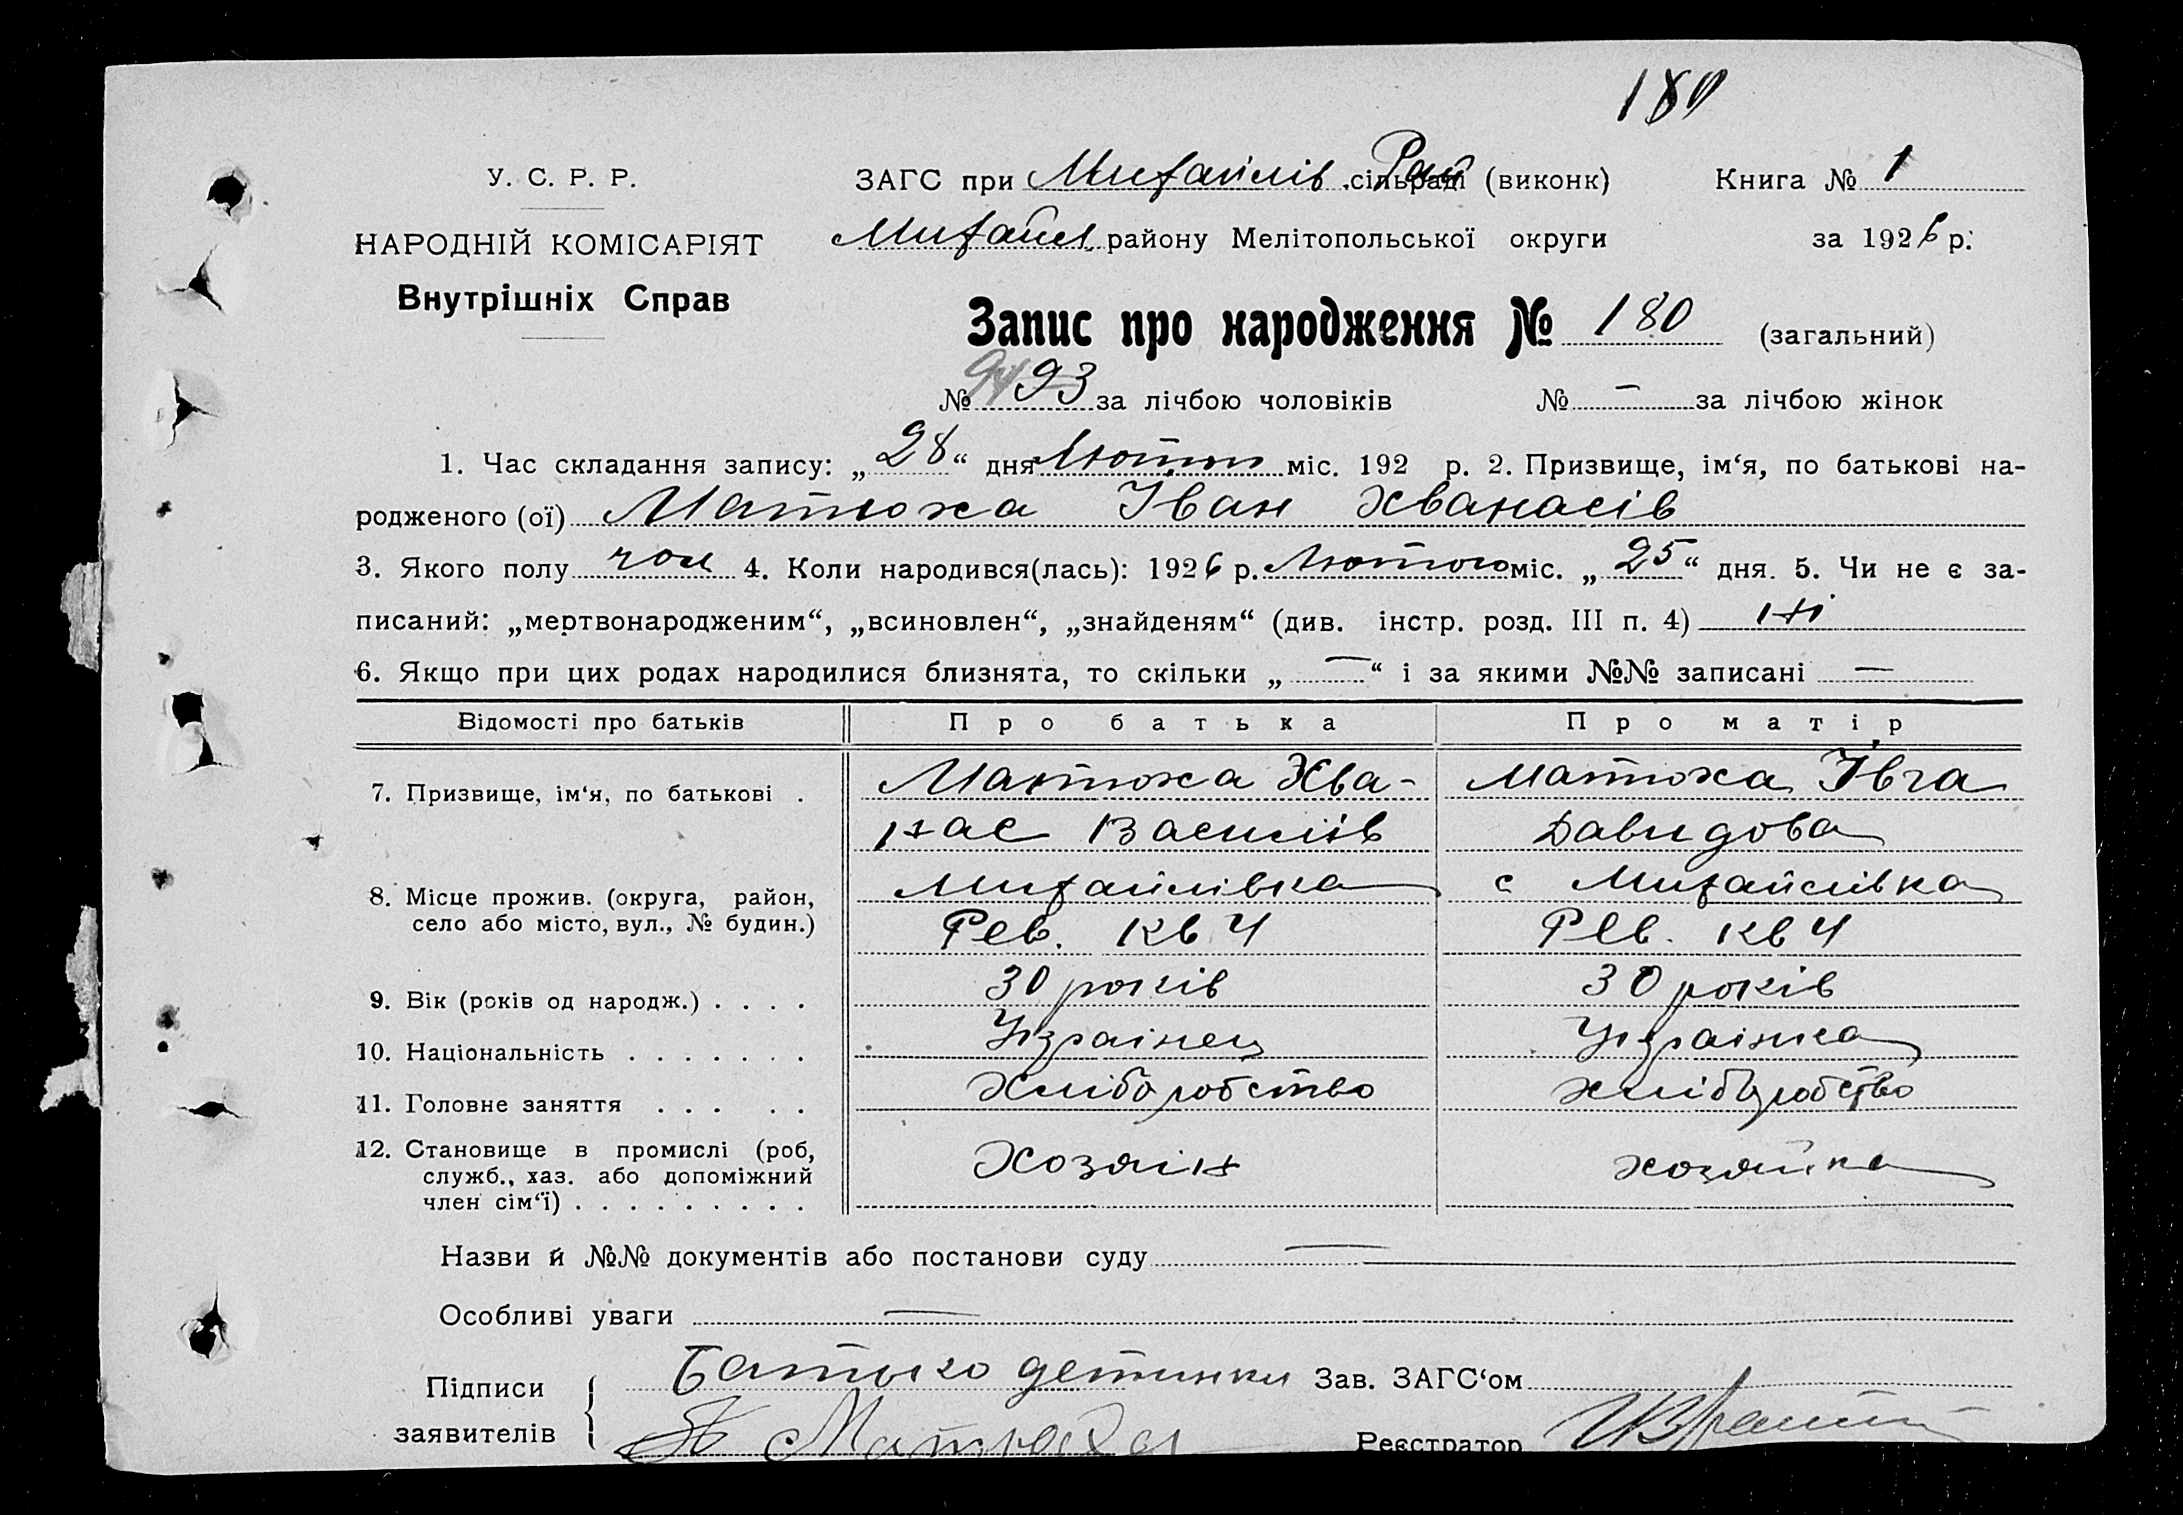 180
У. С. Р. Р.
ЗАГС при Михайлів. сільраді Рай (виконк) Книга № 1
НАРОДНІЙ КОМІСАРІЯТ
Михайл. району Мелітопольської округи за 1926 р.
Внутрішніх Справ
Запис про народження № 180 (загальний)
№ 94 93 за лічбою чоловіків № — за лічбою жінок
1. Час складання запису: „28“ дня Лютого міс. 192 р. 2. Призвище, ім‘я, по батькові на-
родженого (ої) Матюха Іван Хванасів
3. Якого полу чол 4. Коли народився(лась): 1926 р. Лютого міс. „25“ дня. 5. Чи не є за-
писаний: „мертвонародженим“, „всиновлен“, „знайденям“ (див. інстр. розд. III п. 4) ні
6. Якщо при цих родах народилися близнята, то скільки „—“ і за якими №№ записані —
Відомості про батьків Про батька Про матір
7. Призвище, ім‘я, по батькові . Матюха Хва- Матюха Ївга
нас Василів Давидова
8. Місце прожив. (округа, район, Михайлівка с Михайлівка
село або місто, вул., № будин.) Рев. кв 4 Рев. кв 4
9. Вік (років од народж.) . . . . 30 років 30 років
10. Національність . . . . . . . Українец Українка
11. Головне заняття . . . . . Хліборобство хліборобство
12. Становище в промислі (роб, Хозяін хозяйка
служб., хаз. або допоміжний
член сім‘ї) . . . . . . . . .
Назви й №№ документів або постанови суду —
Особливі уваги —
Підписи Батько детинки Зав. ЗАГС‘ом
заявителів Матюха Реєстратор